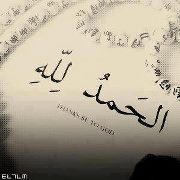 الحَمدُ لِلّهِ
THANKS BE TO GOD